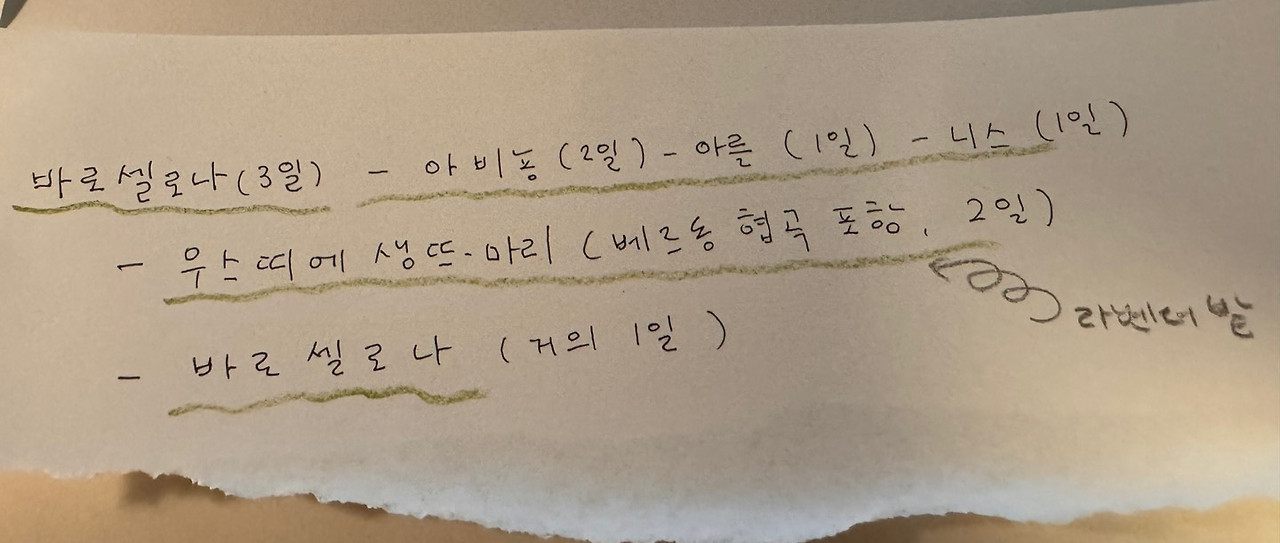 바로셀로나(3일) - 아비뇽(2일) - 아를 (1일) - 니스 (1일)
- 우스띠에 생뜨-마리 (베르동 협곡 포함, 2일)
라벤더 밭
- 바로셀로나 (거의 1일)